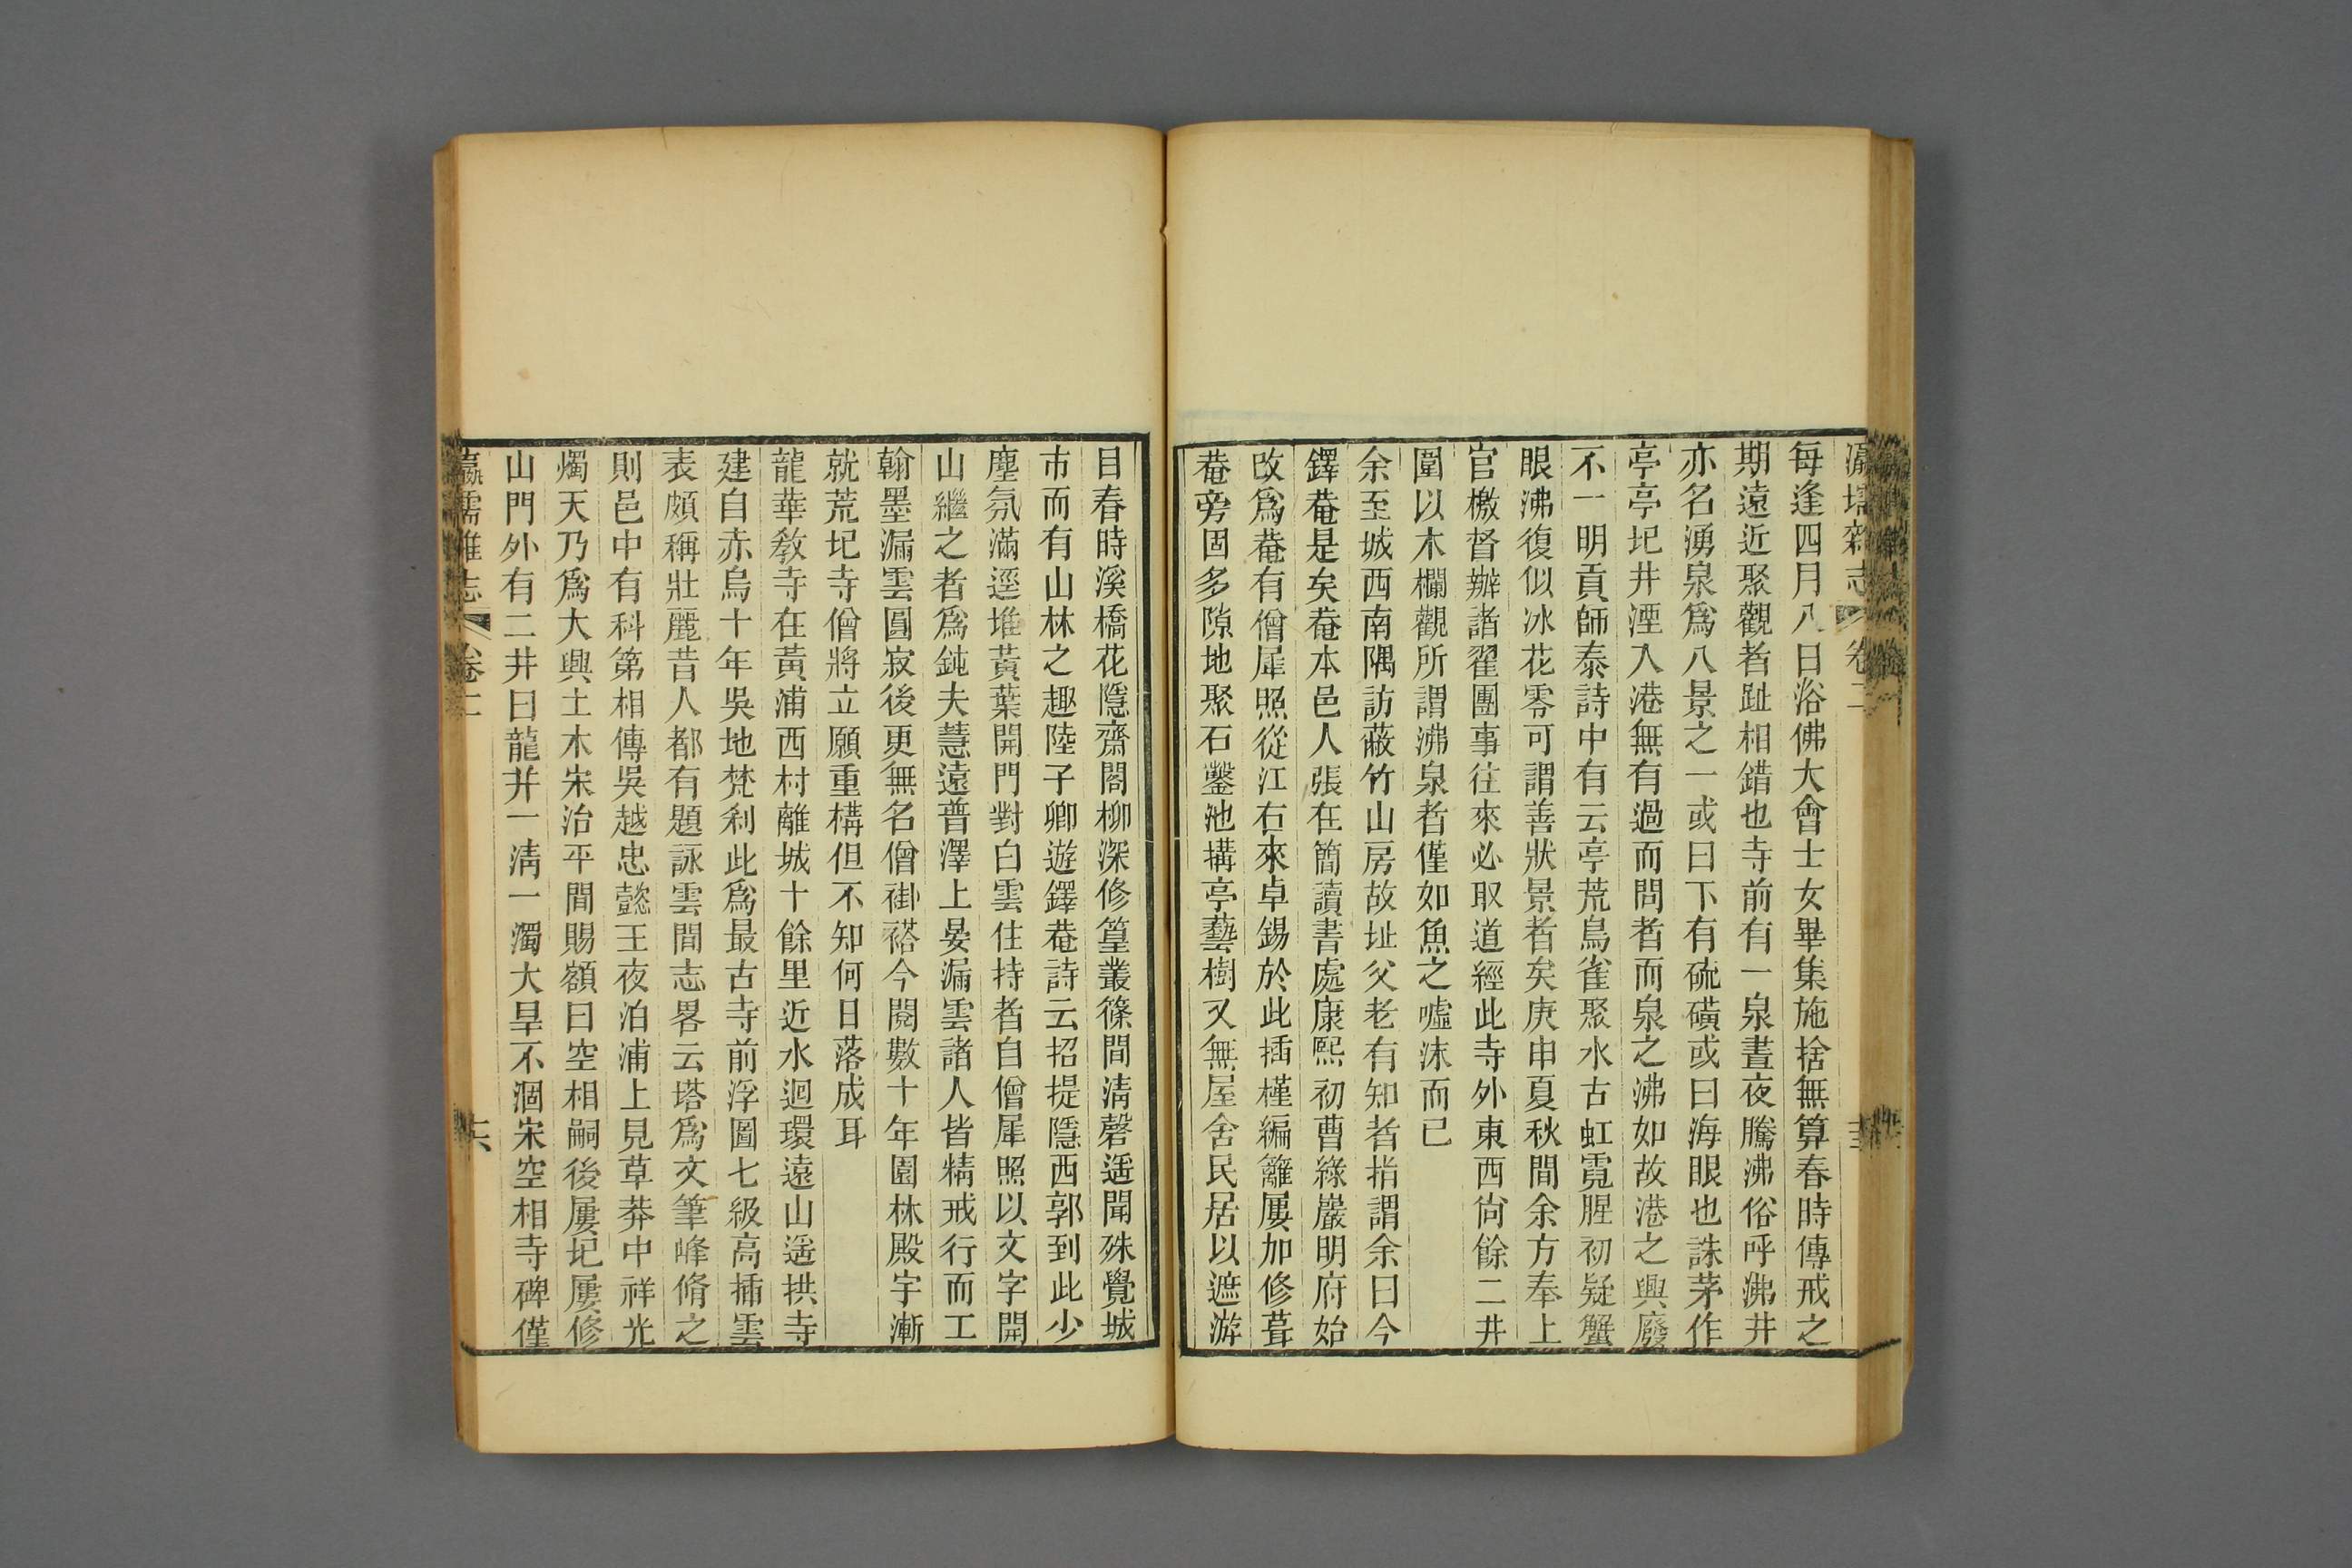 瀛壖雜志 卷二
每逢四月八日浴佛大會士女畢集施捨無算春時傳戒之
期遠近聚觀者趾相錯也寺前有一泉晝夜騰沸俗呼沸井
亦名湧泉爲八景之一或曰下有硫磺或曰海眼也誅茅作
亭亭圮井湮入港無有過而問者而泉之沸如故港之興廢
不一明貢師泰詩中有云亭荒鳥雀聚水古虹霓腥初疑蟹
眼沸復似冰花零可謂善狀景者矣庚申夏秋間余方奉上
官檄督辦諸翟團事往來必取道經此寺外東西尙餘二井
圍以木欄觀所謂沸泉者僅如魚之噓沫而已
余至城西南隅訪蔽竹山房故址父老有知者指謂余曰今
鐸菴是矣菴本邑人張在簡讀書處康熙初曹綠巖明府始
改爲菴有僧犀照從江右來卓錫於此插槿編籬屢加修葺
菴旁固多隙地聚石鑿池搆亭藝樹又無屋舍民居以遮游
目春時溪橋花隱齋閣柳深修篁叢篠間淸磬遥聞殊覺城
市而有山林之趣陸子卿遊鐸菴詩云招提隱西郭到此少
塵氛滿逕堆黃葉開門對白雲住持者自僧犀照以文字開
山繼之者爲鈍夫慧遠普澤上晏漏雲諸人皆精戒行而工
翰墨漏雲圓寂後更無名僧褂褡今閱數十年園林殿宇漸
就荒圮寺僧將立願重構但不知何日落成耳
龍華敎寺在黃浦西村離城十餘里近水迴環遠山遥拱寺
建自赤烏十年吳地梵刹此爲最古寺前浮圖七級高揷雲
表頗稱壯麗昔人都有題詠雲間志畧云塔爲文筆峰脩之
則邑中有科第相傳吳越忠懿王夜泊浦上見草莽中祥光
燭天乃爲大興土木宋治平間賜額曰空相嗣後屢圮屢修
山門外有二井曰龍井一淸一濁大旱不涸宋空相寺碑僅
瀛壖雜志 卷二 十六